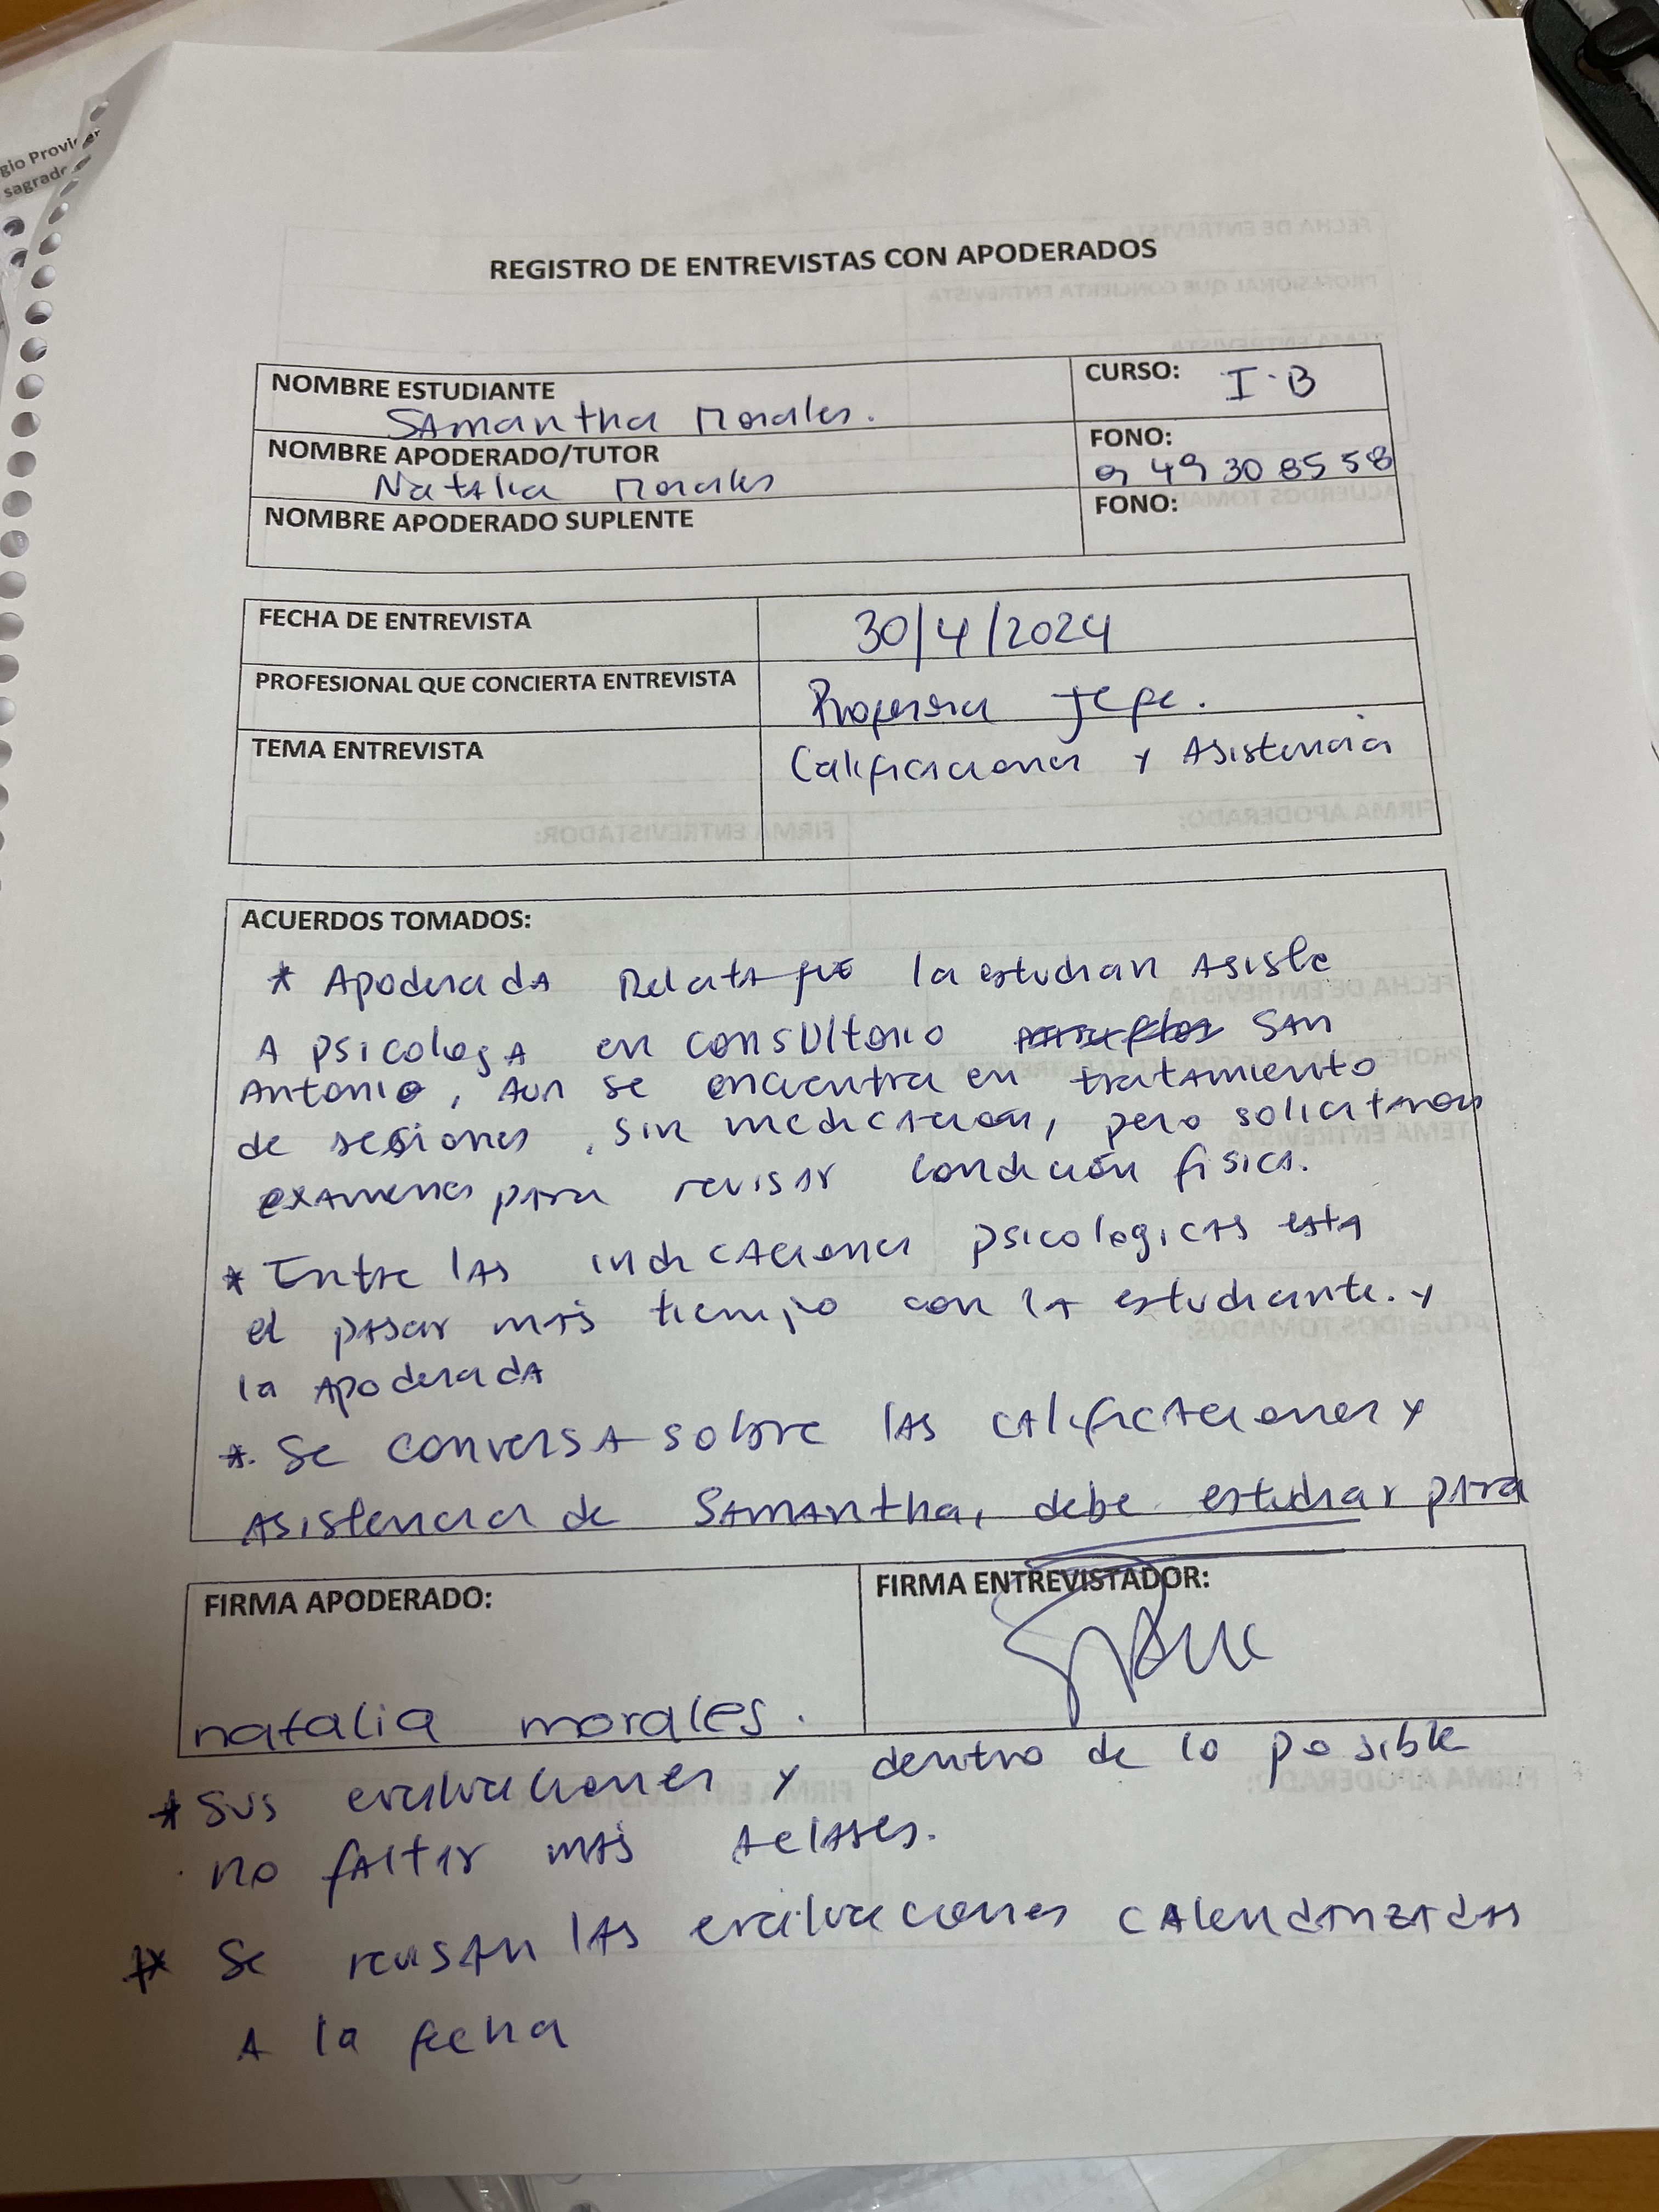 gio Provi
sagrad
REGISTRO DE ENTREVISTAS CON APODERADOS
NOMBRE ESTUDIANTE
Samantha Morales.
CURSO: I-B
NOMBRE APODERADO/TUTOR
Natalia Morales
FONO:
9 49 30 85 58
NOMBRE APODERADO SUPLENTE
FONO:
FECHA DE ENTREVISTA 30/4/2024
PROFESIONAL QUE CONCIERTA ENTREVISTA Profesora Jefe.
TEMA ENTREVISTA Calificaciones y Asistencia
ACUERDOS TOMADOS:
* Apoderada Relata que la estudian Asiste
A psicologa en consultorio San
Antonio, aun se encuentra en tratamiento
de sesiones, sin medicación, pero solicitaron
examenes para revisar condición física.
* Entre las indicaciones psicologicas esta
el pasar más tiempo con la estudiante. y
la Apoderada
*. Se conversa sobre las calificaciones y
Asistencia de Samantha, debe estudiar para
FIRMA APODERADO:
natalia morales.
FIRMA ENTREVISTADOR:
* Sus evaluaciones y dentro de lo posible
no faltar más a clases.
* Se revisan las evaluaciones calendarizadas
A la fecha